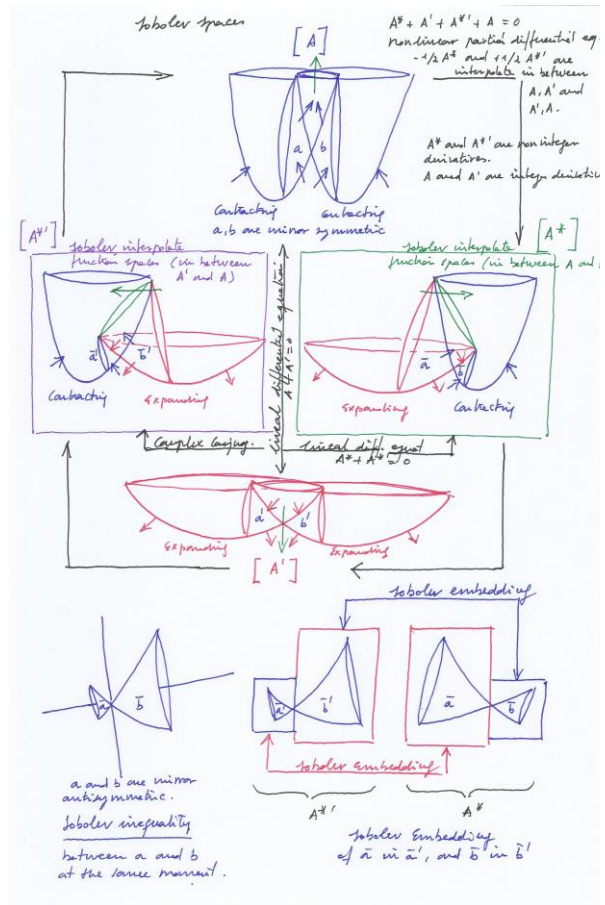 Sobolev spaces
A* + A' + A*' + A = 0
non linear partial differential equ
-1/2 A* and +1/2 A*' are
interpolate in between
A, A' and
A', A.
A* and A*' are non integer
derivatives.
A and A' are integer derivativ
[A]
a b
Contracting Contracting
a, b are mirror symmetric
[A*'] [A*]
Sobolev interpolate
function spaces (in between
A' and A)
Sobolev interpolate
function spaces (in between A and
ā' b̄'
Contracting
Expanding
lineal differential equation
A + A' = 0
ā b̄
Expanding
Contracting
Complex Conjug.
lineal diff. equat
A* + A*' = 0
a' b'
Expanding Expanding
[A']
Sobolev embedding
ā b̄
ā' b̄' ā b̄
Sobolev embedding
A*' A*
a and b are mirror
antisymmetric.
Sobolev inequality
between a and b
at the same moment.
Sobolev Embedding
of ā in ā', and b̄ in b̄'